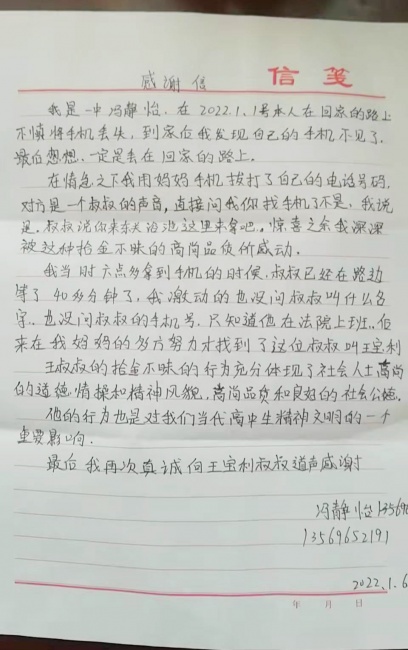 感谢信 信笺
我是一中冯静怡,在2022.1.1号本人在回家的路上
不慎将手机丢失,到家后我发现自己的手机不见了.
最后想想,一定是丢在回家的路上.
在情急之下我用妈妈手机拨打了自己的电话号码.
对方是一个叔叔的声音,直接问我你找手机了不是,我说
是.叔叔说你来东关 这里来拿吧.惊喜之余我深深
被这种拾金不昧的高尚品质所感动.
我当时六点多拿到手机的时候,叔叔已经在路边
等了40多分钟了,我激动的也没问叔叔叫什么名
字.也没问叔叔的手机号.只知道他在法院上班..后
来在我妈妈的多方努力才找到了这位叔叔叫王宝利
王叔叔的拾金不昧的行为充分体现了社会人士高尚
的道德情操和精神风貌,高尚品质和良好的社会公德.
他的行为也是对我们当代高中生精神文明的一个
重要影响.
最后我再次真诚向王宝利叔叔道声感谢
冯静怡 13569
13569652191
2022.1.6
年 月 日